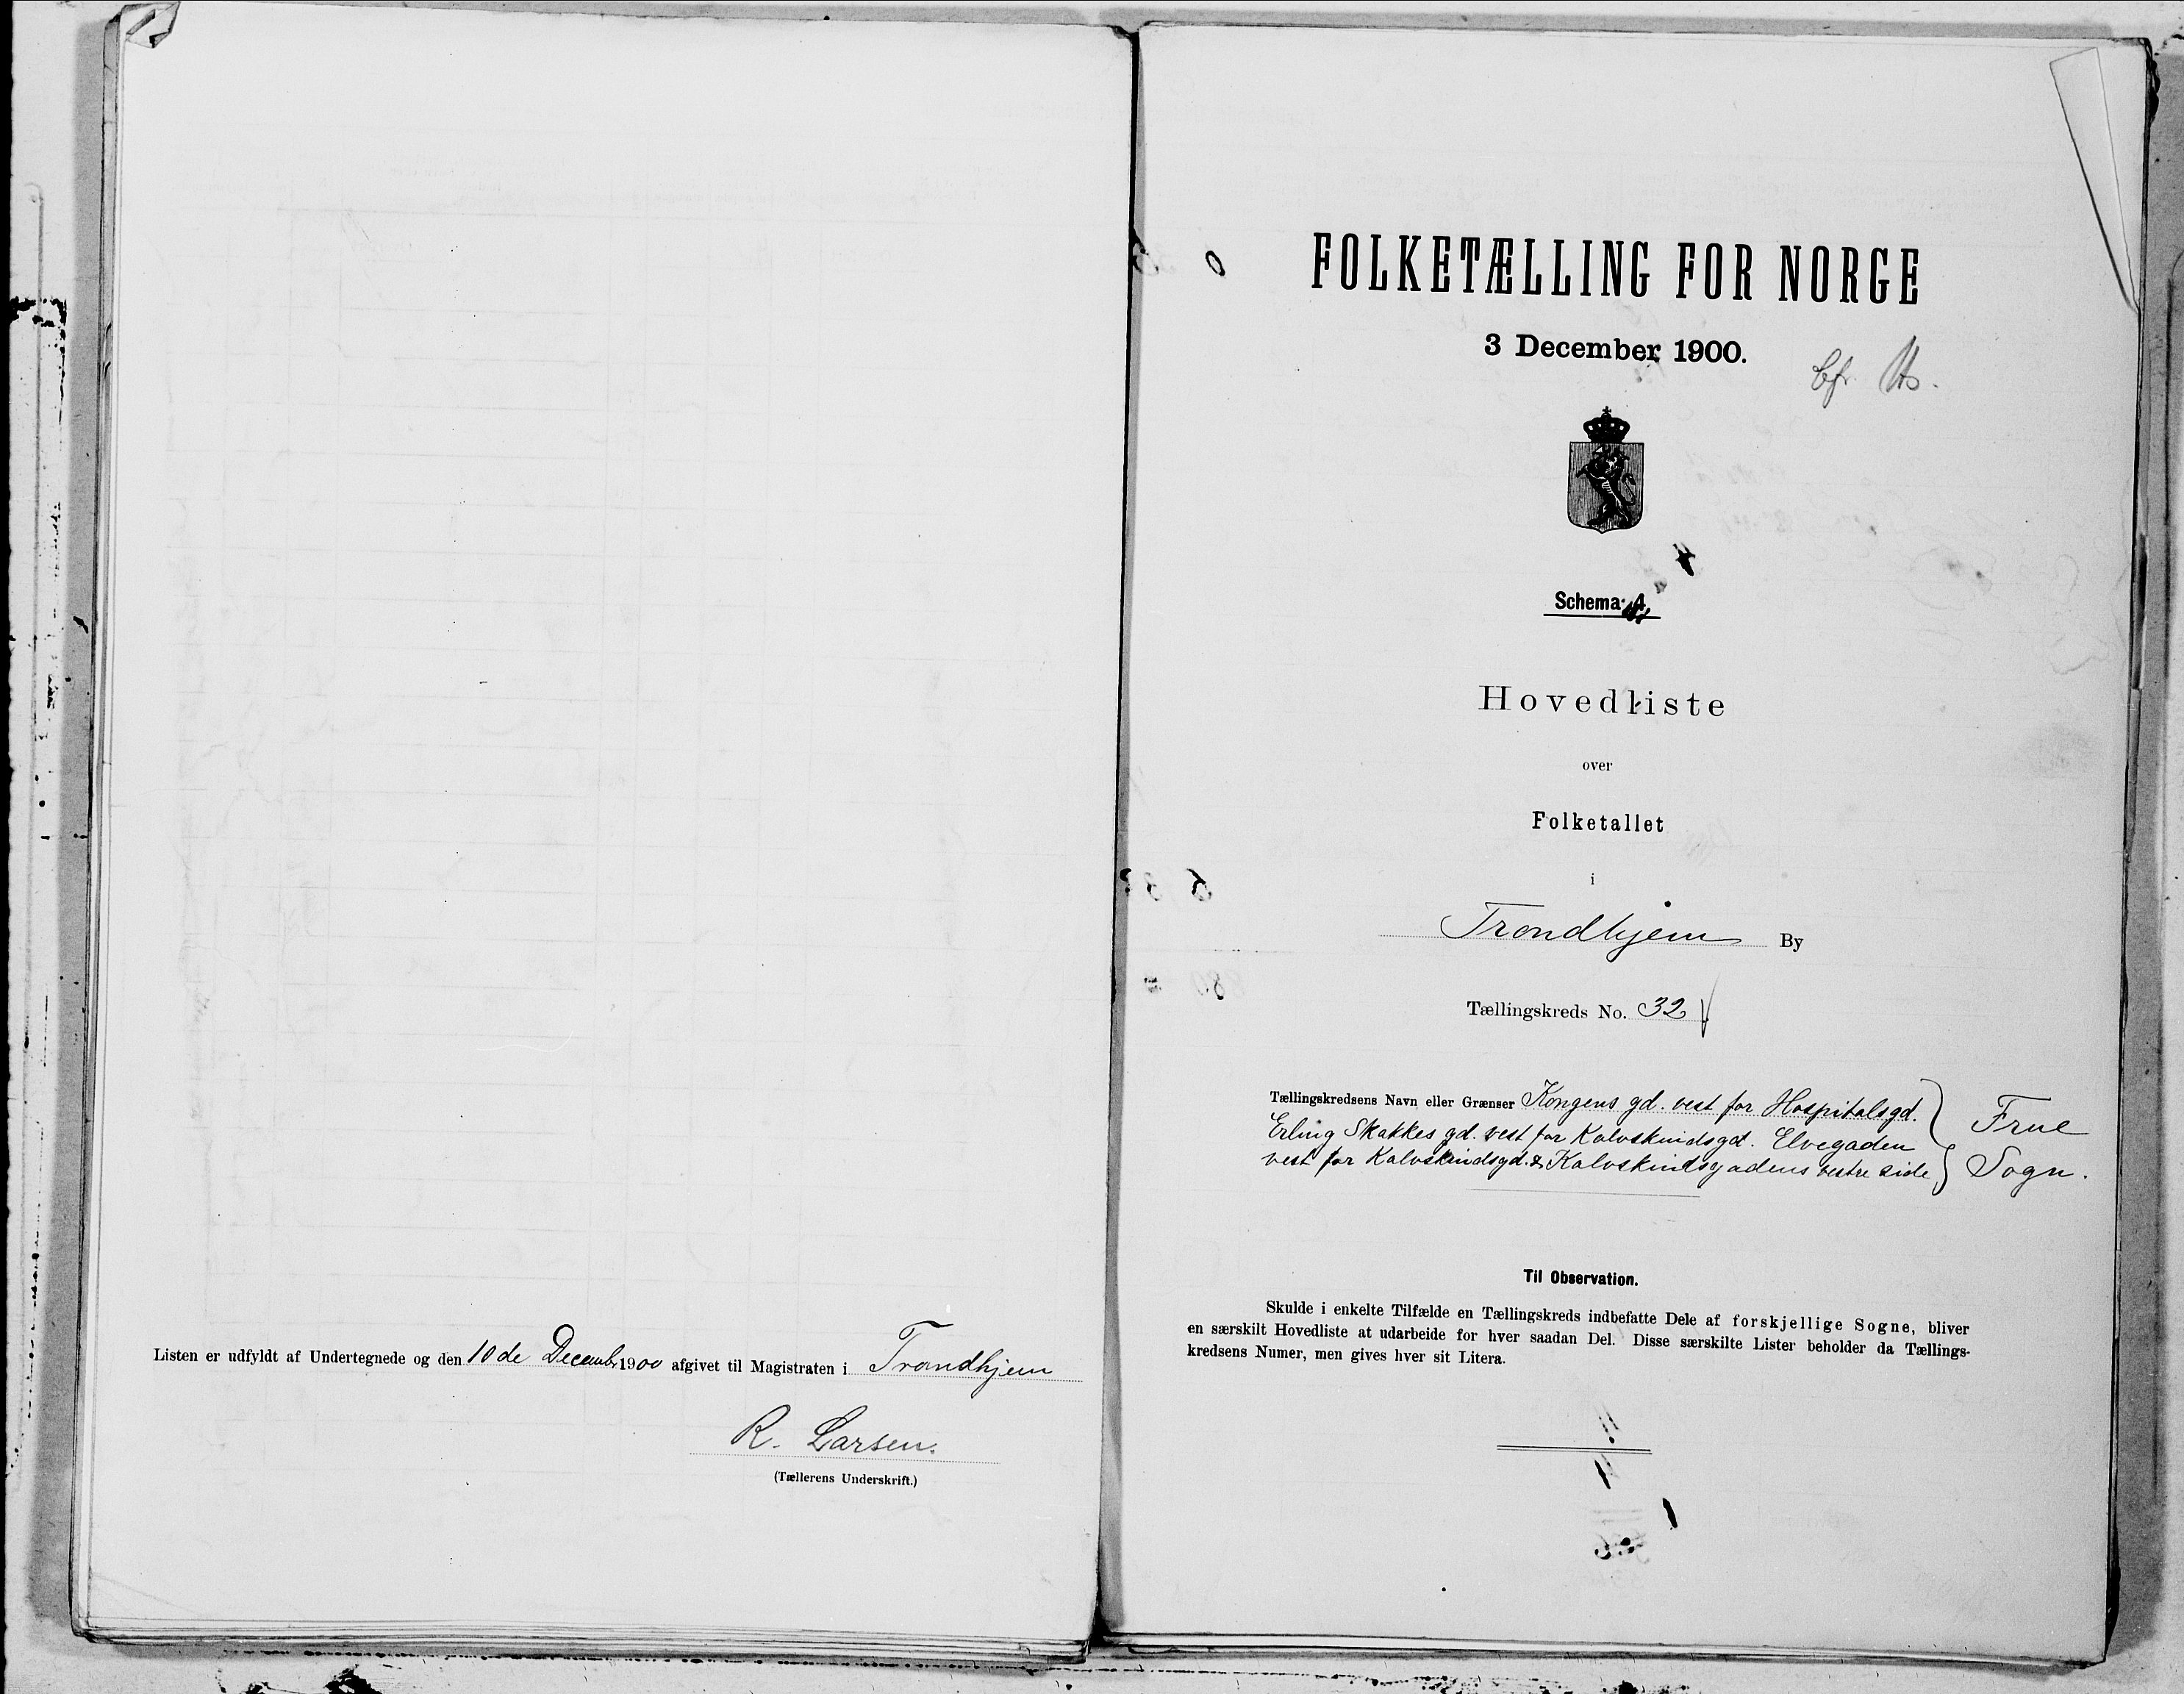 Listen er udfyldt af Undertegnede og den 10de Decemb. 1900 afgivet til Magistraten i Trondhjem
R. Larsen.
(Tællerens Underskrift.)
FOLKETÆLLING FOR NORGE
3 December 1900.
Schema
Hovedliste
over
Folketallet
i
Trondhjem By
Tællingskreds No. 32
Tællingskredsens Navn eller Grænser Kongens gd. vest for Hospitalsgd.
Erling Skakkes gd. vest for Kalvskindsgd. Elvegaden
vest for Kalvskindsgd. & Kalvskindsgadens vestre side
Frue
Sogn.
Til Observation.
Skulde i enkelte Tilfælde en Tællingskreds indbefatte Dele af forskjellige Sogne, bliver
en særskilt Hovedliste at udarbeide for hver saadan Del. Disse særskilte Lister beholder da Tællings-
kredsens Numer, men gives hver sit Litera.